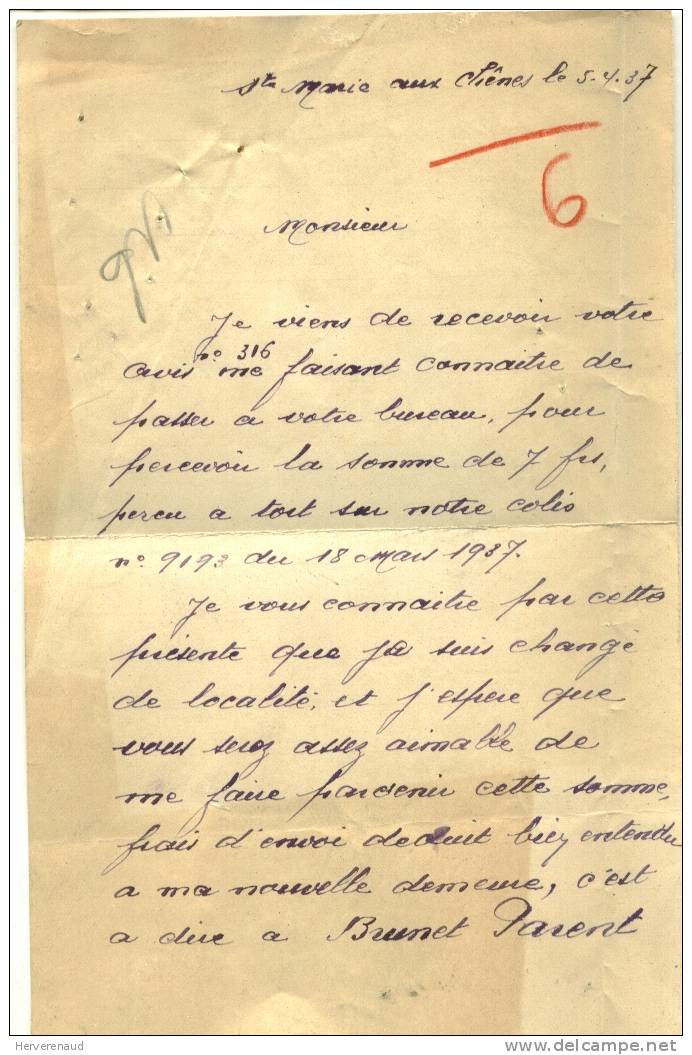 Ste Marie aux Chênes le 5-4-37
6
Monsieur
Je viens de recevoir votre
no 316
avis me faisant connaitre de
passer a votre bureau, pour
percevoir la somme de 7 frs,
percu a tort sur notre colis
no 9193 du 18 Mars 1937.
Je vous connaitre par cette
présente que je suis changé
de localité, et j'espere que
vous serez assez aimable de
me faire parvenir cette somme,
frais d'envoi deduit bien entendu
a ma nouvelle demeure, c'est
a dire a Brunet Parent
Herverenaud
www.delcampe.net